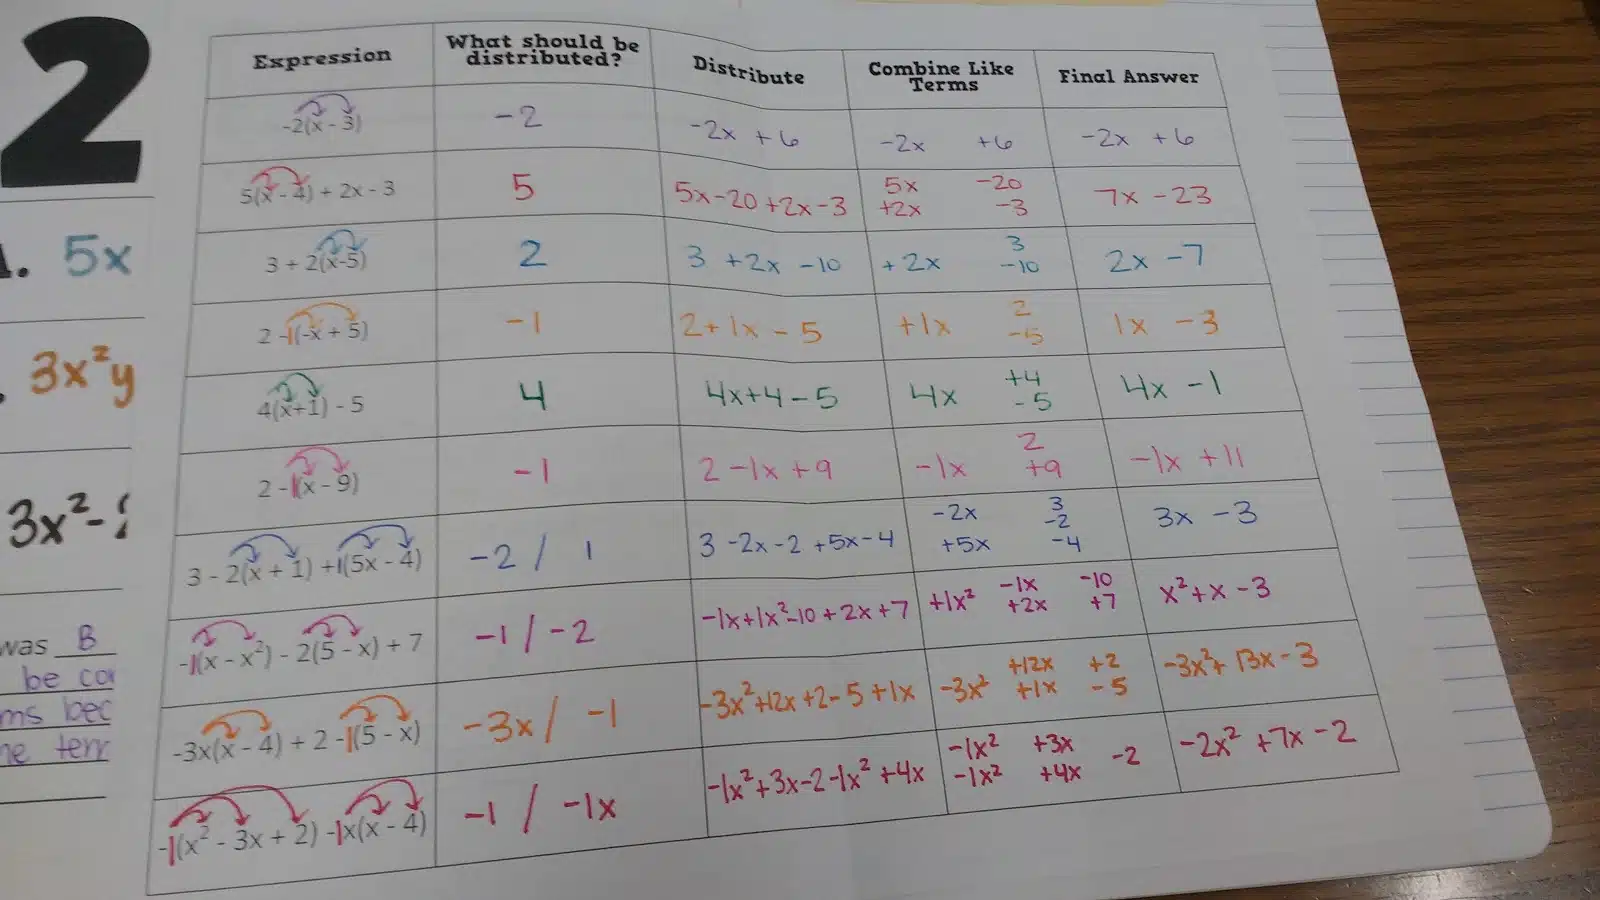 2
1. 5x
3x²y
3x²-
was B
be
ms bec
Expression What should be distributed? Distribute Combine Like Terms Final Answer
-2(x - 3) -2 -2x +6 -2x +6 -2x +6
5(x - 4) + 2x - 3 5 5x-20+2x-3 5x +2x -20 -3 7x -23
3 + 2(x-5) 2 3 +2x -10 +2x 3 -10 2x -7
2 -1(-x + 5) -1 2+1x - 5 +1x 2 -5 1x -3
4(x+1) - 5 4 4x+4-5 4x +4 -5 4x -1
2 -1(x - 9) -1 2 -1x +9 -1x 2 +9 -1x +11
3 - 2(x + 1) +1(5x - 4) -2 / 1 3 -2x -2 +5x -4 -2x +5x 3 -2 -4 3x -3
-1(x - x²) - 2(5 - x) + 7 -1 / -2 -1x+1x²-10 + 2x +7 +1x² -1x +2x -10 +7 x²+x -3
-3x(x - 4) + 2 -1(5 - x) -3x / -1 -3x²+12x +2 -5 +1x -3x² +12x +1x +2 -5 -3x²+ 13x -3
-1(x² - 3x + 2) -1x(x - 4) -1 / -1x -1x²+3x-2-1x²+4x -1x² -1x² +3x +4x -2 -2x² +7x -2